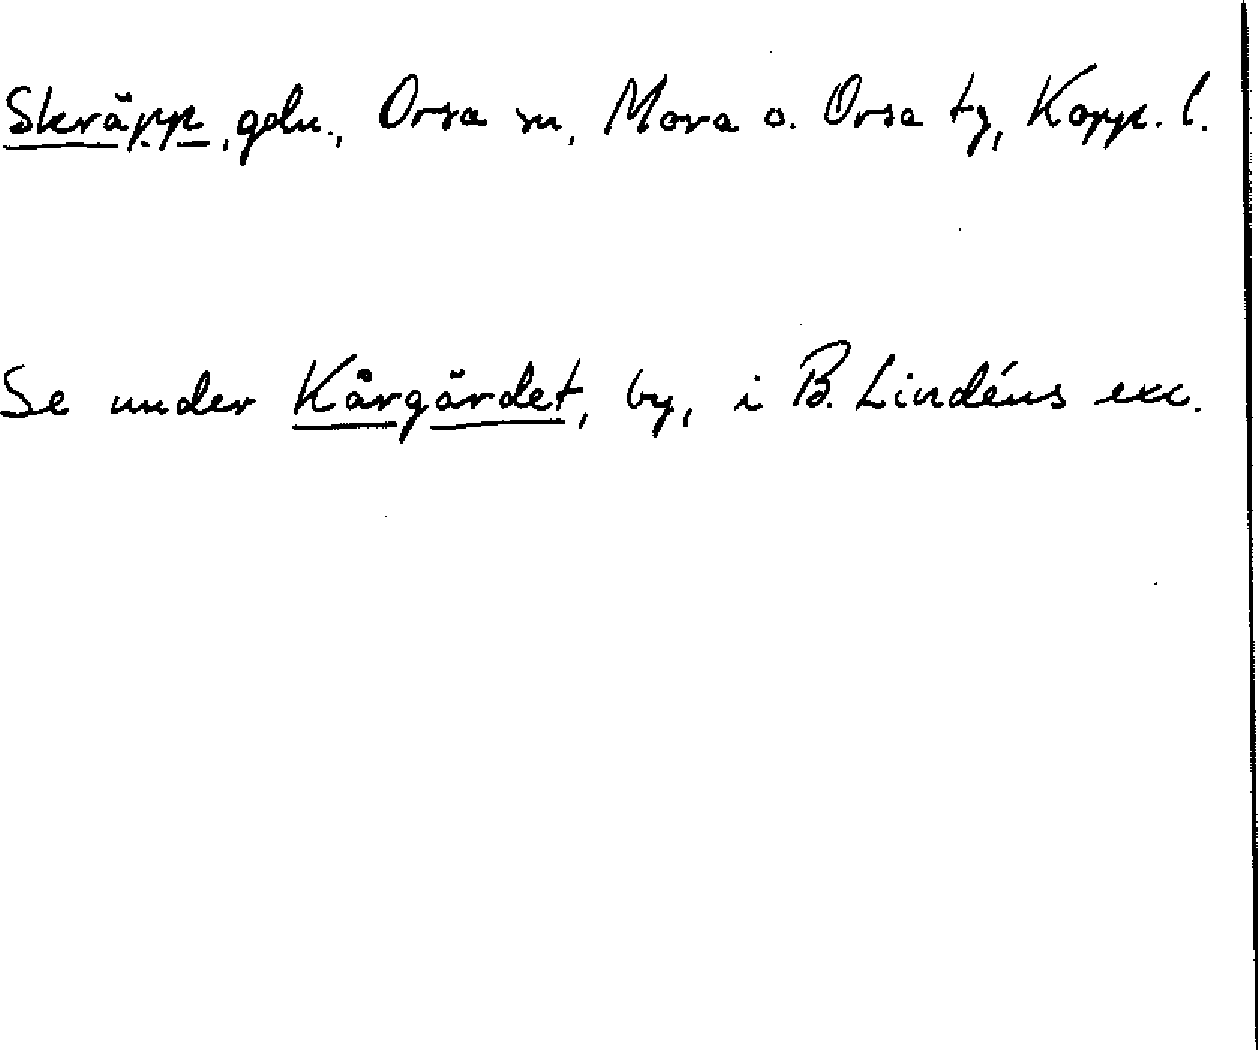 Skräpp, gdn., Orsa sn, Mora o. Orsa tg, Kopp. l.
Se under Kårgärdet, by, i B. Lindéns exc.